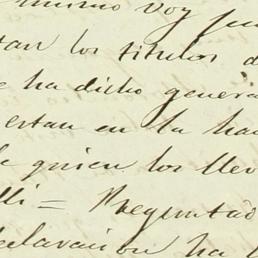 mismo voy
tan los titulos d
e ha dicho genera
estan en la ha
e quien los llev
lli = Preguntad
eclaracion ha